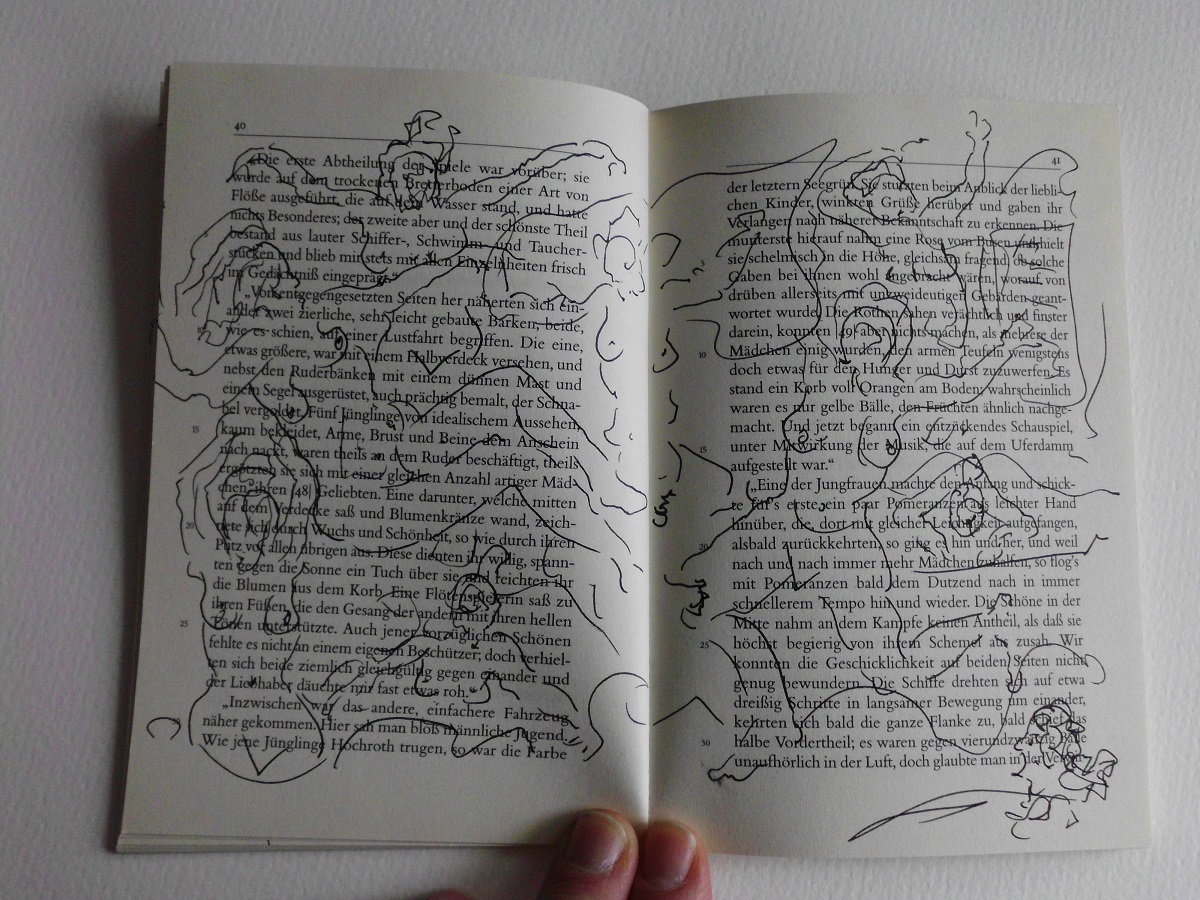 40
„Die erste Abtheilung der Spiele war vorüber; sie
wurde auf dem trockenen Bretterboden einer Art von
Flöße ausgeführt, die auf dem Wasser stand, und hatte
nichts Besonderes; der zweite aber und der schönste Theil
bestand aus lauter Schiffer-, Schwimm- und Taucher-
stücken und blieb mir stets mit allen Einzelnheiten frisch
im Gedächtniß eingeprägt.“
„Von entgegengesetzten Seiten her näherten sich ein-
ander zwei zierliche, sehr leicht gebaute Barken, beide,
wie es schien, auf einer Lustfahrt begriffen. Die eine,
etwas größere, war mit einem Halbverdeck versehen, und
nebst den Ruderbänken mit einem dünnen Mast und
einem Segel ausgerüstet, auch prächtig bemalt, der Schna-
bel vergoldet. Fünf Jünglinge von idealischem Aussehen,
15 kaum bekleidet, Arme, Brust und Beine dem Anschein
nach nackt, waren theils an dem Ruder beschäftigt, theils
ergötzten sie sich mit einer gleichen Anzahl artiger Mäd-
chen, ihren |48| Geliebten. Eine darunter, welche mitten
auf dem Verdecke saß und Blumenkränze wand, zeich-
20 nete sich durch Wuchs und Schönheit, so wie durch ihren
Putz vor allen übrigen aus. Diese dienten ihr willig, spann-
ten gegen die Sonne ein Tuch über sie und reichten ihr
die Blumen aus dem Korb. Eine Flötenspielerin saß zu
ihren Füßen, die den Gesang der andern mit ihren hellen
25 Tönen unterstützte. Auch jener vorzüglichen Schönen
fehlte es nicht an einem eigenen Beschützer; doch verhiel-
ten sich beide ziemlich gleichgültig gegen einander und
der Liebhaber däuchte mir fast etwas roh.“
„Inzwischen war das andere, einfachere Fahrzeug
30 näher gekommen. Hier sah man bloß männliche Jugend.
Wie jene Jünglinge Hochroth trugen, so war die Farbe
41
der letztern Seegrün. Sie stutzten beim Anblick der liebli-
chen Kinder, winkten Grüße herüber und gaben ihr
Verlangen nach näherer Bekanntschaft zu erkennen. Die
munterste hierauf nahm eine Rose vom Busen und hielt
5 sie schelmisch in die Höhe, gleichsam fragend, ob solche
Gaben bei ihnen wohl angebracht wären, worauf von
drüben allerseits mit unzweideutigen Gebärden geant-
wortet wurde. Die Rothen sahen verächtlich und finster
darein, konnten |49| aber nichts machen, als mehrere der
10 Mädchen einig wurden, den armen Teufeln wenigstens
doch etwas für den Hunger und Durst zuzuwerfen. Es
stand ein Korb voll Orangen am Boden; wahrscheinlich
waren es nur gelbe Bälle, den Früchten ähnlich nachge-
macht. Und jetzt begann ein entzückendes Schauspiel,
15 unter Mitwirkung der Musik, die auf dem Uferdamm
aufgestellt war.“
„Eine der Jungfrauen machte den Anfang und schick-
te für's erste ein paar Pomeranzen aus leichter Hand
hinüber, die, dort mit gleicher Leichtigkeit aufgefangen,
20 alsbald zurückkehrten; so ging es hin und her, und weil
nach und nach immer mehr Mädchen zuhalfen, so flog's
mit Pomeranzen bald dem Dutzend nach in immer
schnellerem Tempo hin und wieder. Die Schöne in der
Mitte nahm an dem Kampfe keinen Antheil, als daß sie
25 höchst begierig von ihrem Schemel aus zusah. Wir
konnten die Geschicklichkeit auf beiden Seiten nicht
genug bewundern. Die Schiffe drehten sich auf etwa
dreißig Schritte in langsamer Bewegung um einander,
kehrten sich bald die ganze Flanke zu, bald schief das
30 halbe Vordertheil; es waren gegen vierundzwanzig Bälle
unaufhörlich in der Luft, doch glaubte man in der